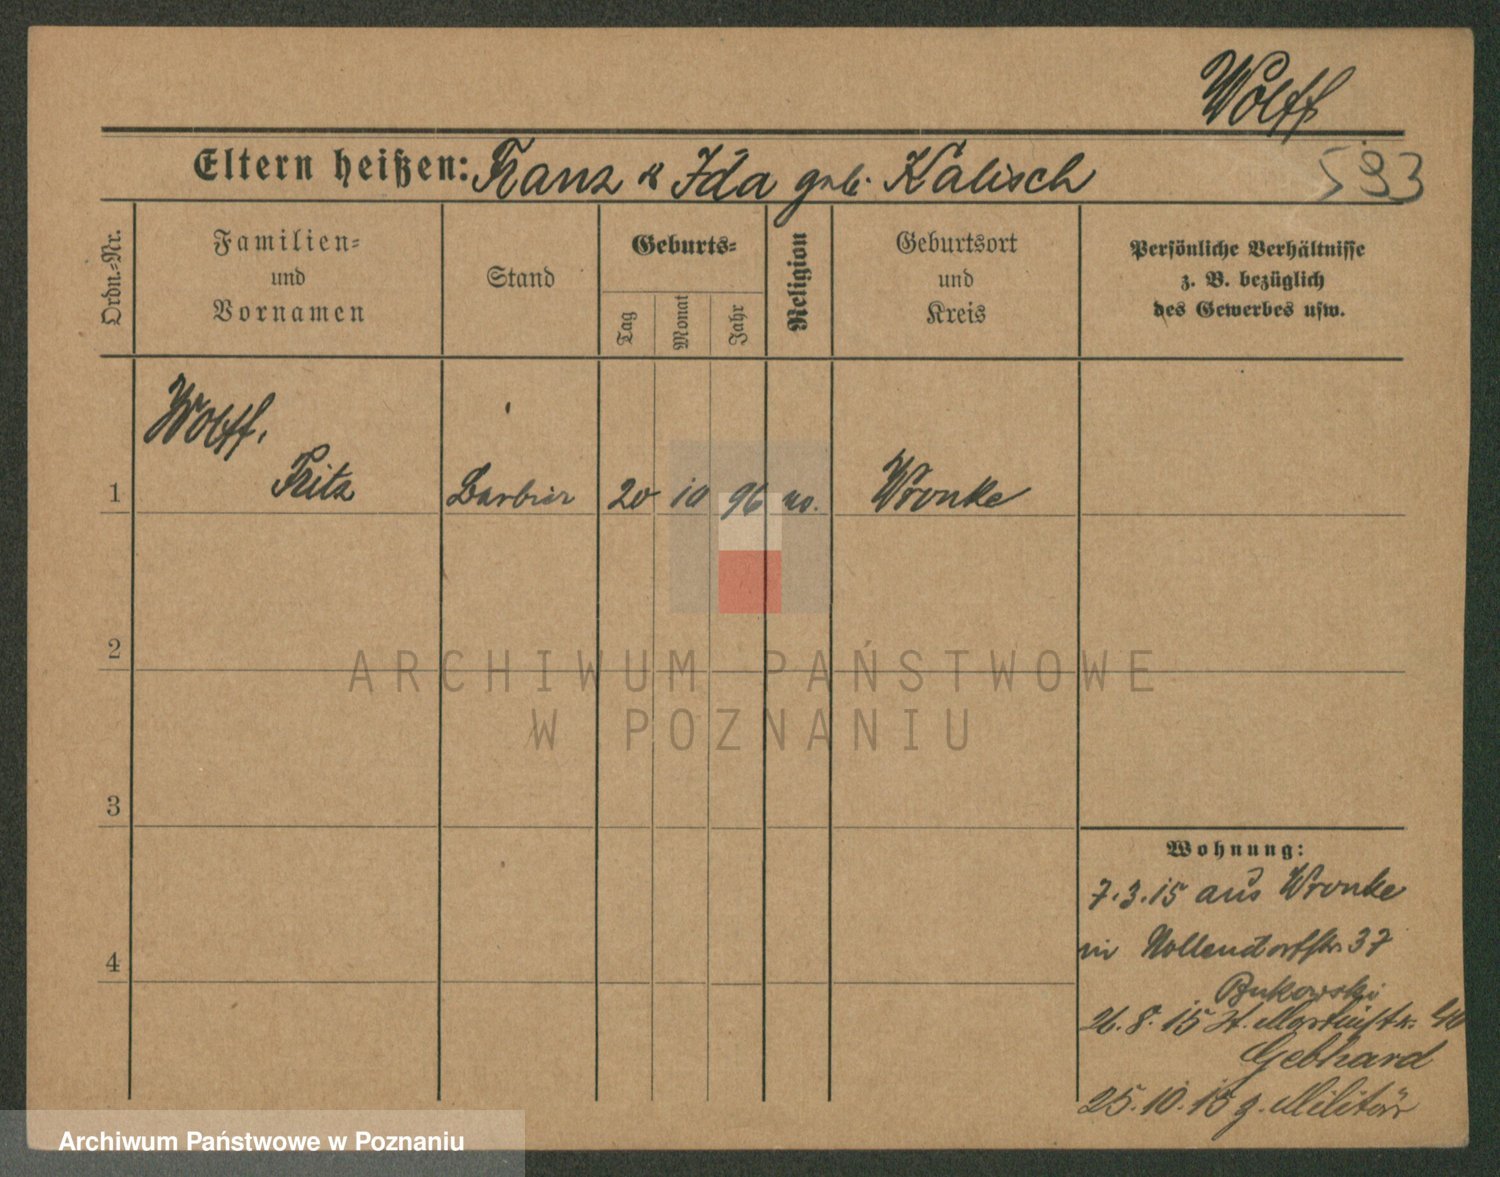 Wolff
Eltern heißen: Franz & Ida geb. Kalisch
593
Ordn.=Nr.
Familien=
und
Vornamen
Stand
Geburts=
Tag
Monat
Jahr
Religion
Geburtsort
und
Kreis
Persönliche Verhältnisse
z. B. bezüglich
des Gewerbes usw.
Wolff,
1 Fritz Barbier 20 10 96 Wronke
2
ARCHIWUM PAŃSTWOWE
W POZNANIU
3
Wohnung:
7.3.15 aus Wronke
in Nollendorfstr. 37
4
Bukowski
26.8.15 St. Martinstr. 40
Gebhard
25.10.15 z. Militär
Archiwum Państwowe w Poznaniu